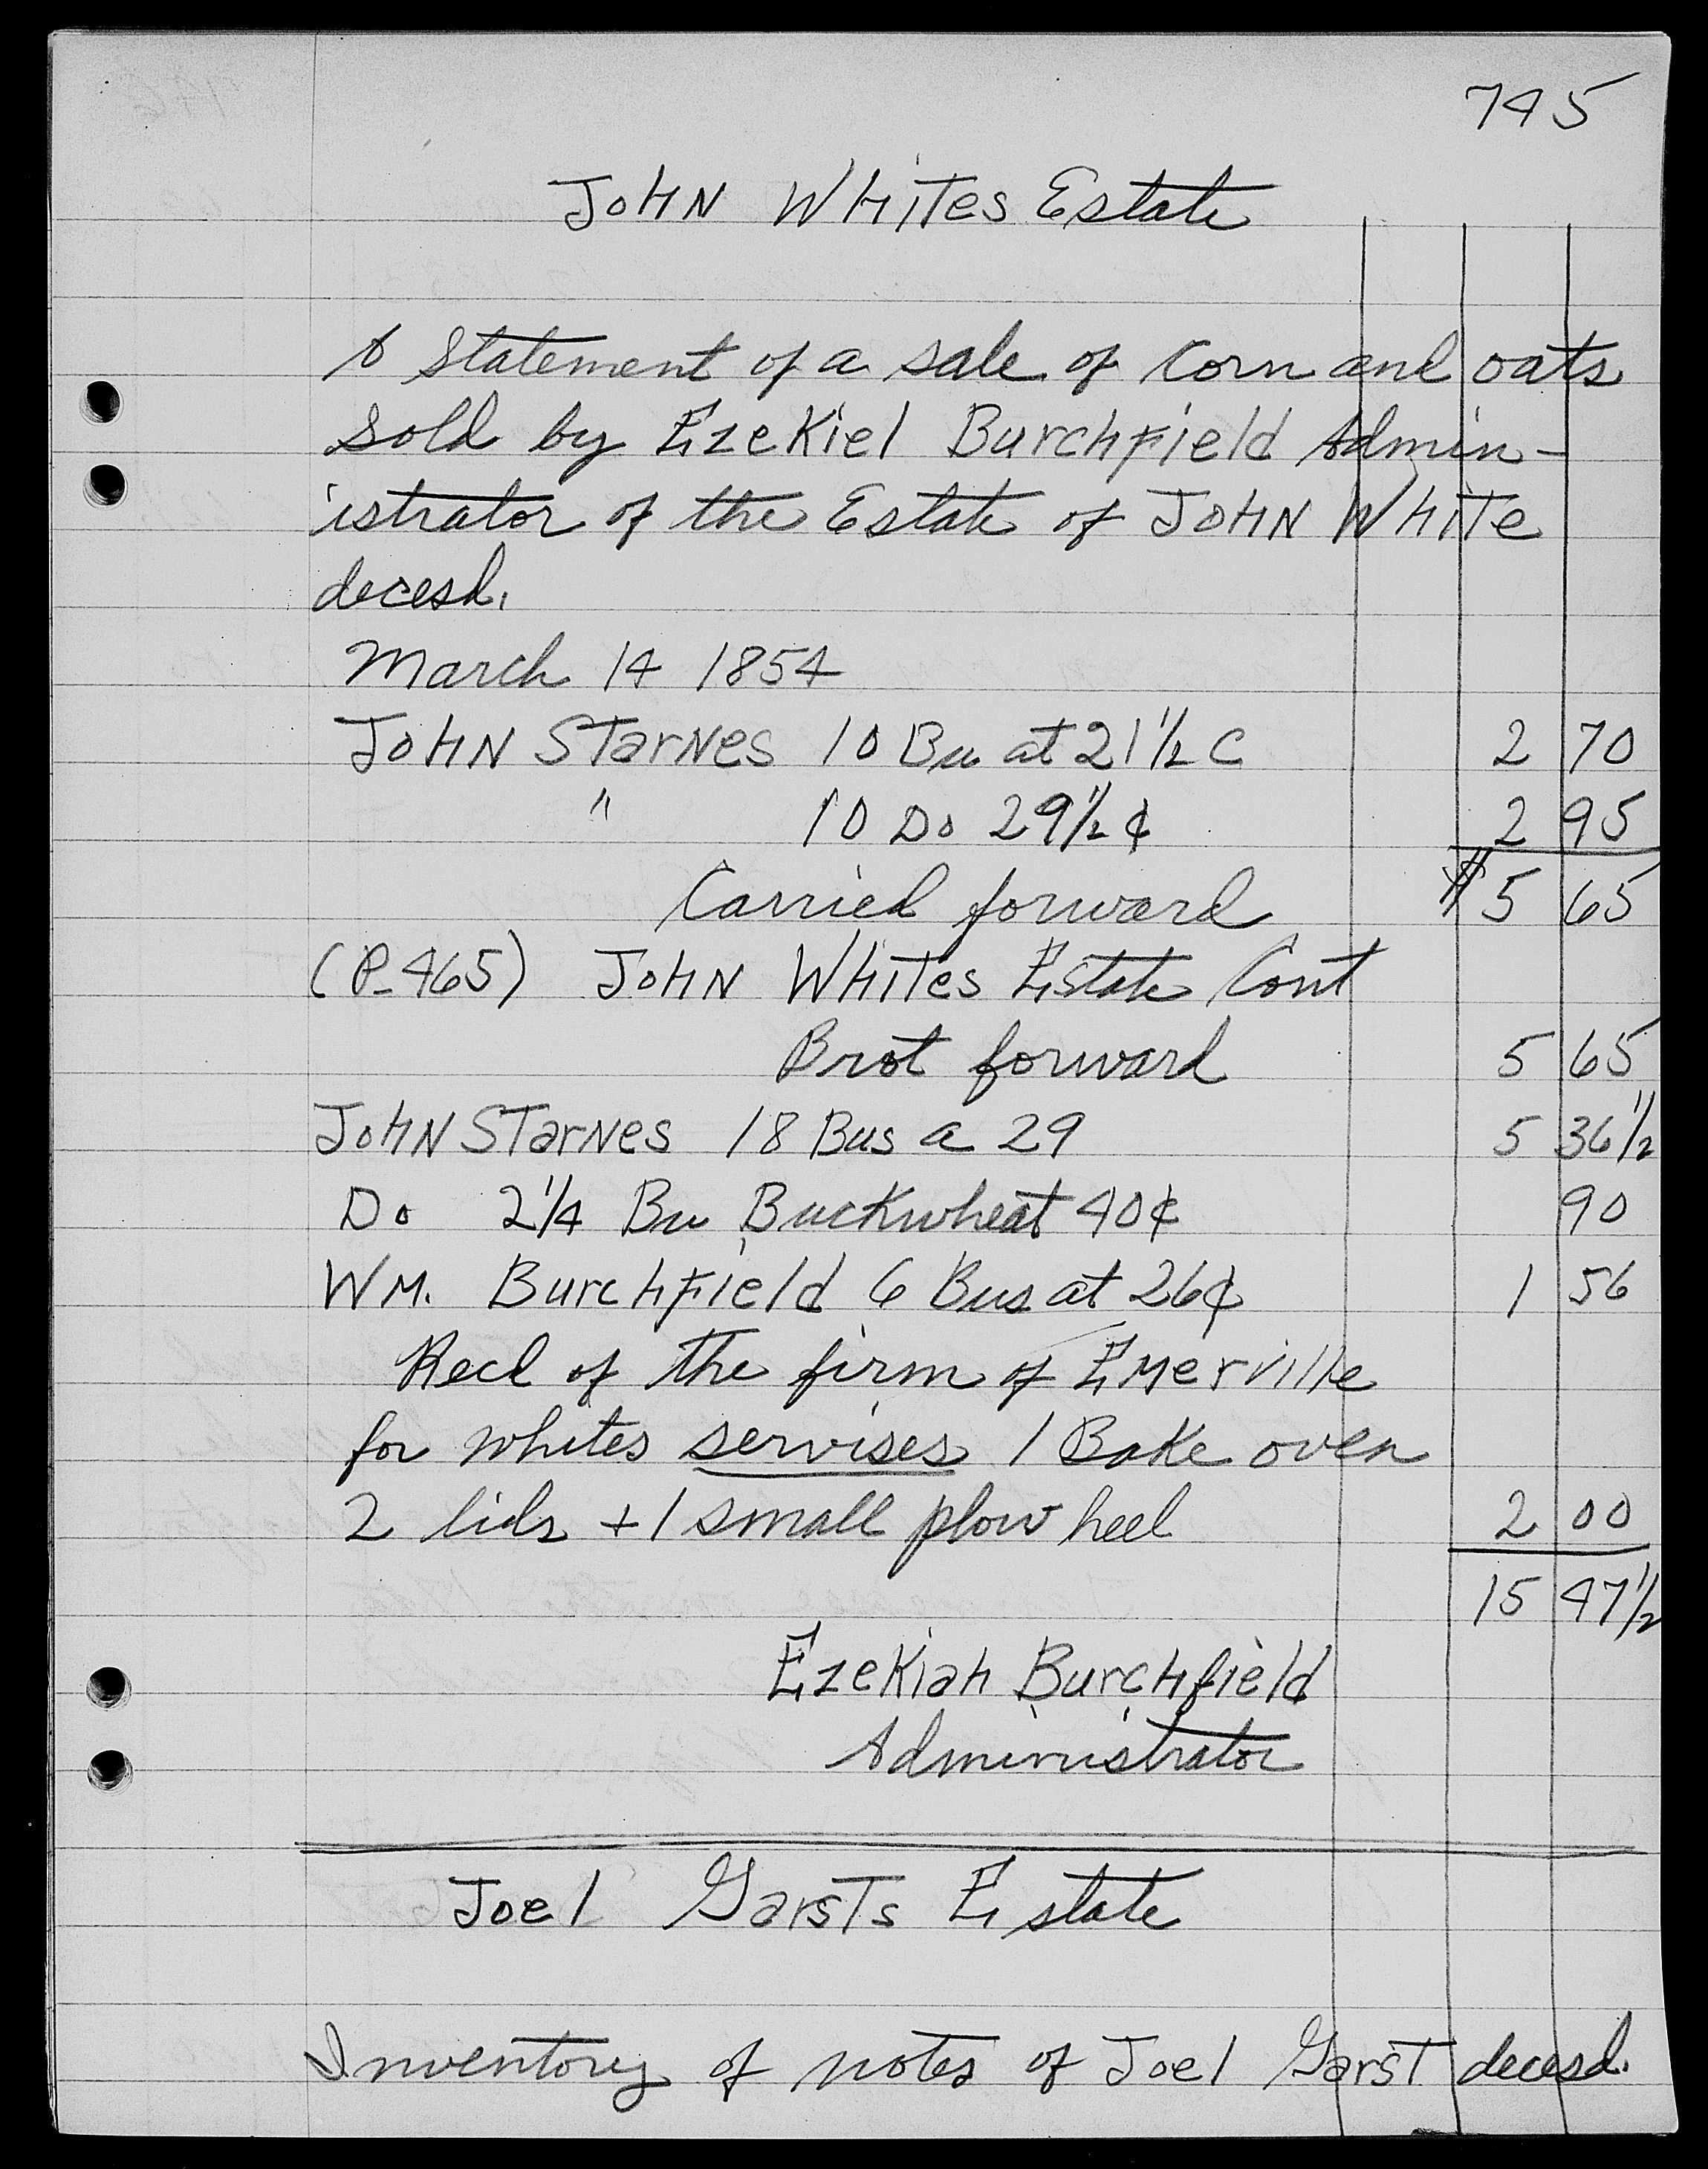 745
John Whites Estate
A Statement of a sale of Corn and oats
Sold by Ezekiel Burchfield Admin-
istrator of the Estate of John White
decesd.
March 14 1854
John Starnes 10 Bu at 21 1/2 C 2 70
" 10 Do 29 1/2 ¢ 2 95
Carried forward $ 5 65
(P-465) John Whites Estate Cont
Brot forward 5 65
John Starnes 18 Bus a 29 5 36 1/2
Do 2 1/4 Bu Buckwheat 40¢ 90
Wm. Burchfield 6 Bus at 26¢ 1 56
Recd of the firm of Emerville
for whites servises 1 Bake oven
2 lids + 1 small plow heel 2 00
15 47 1/2
Ezekiah Burchfield
Administrator
Joel Garsts Estate
Inventory of notes of Joel Garst decesd.